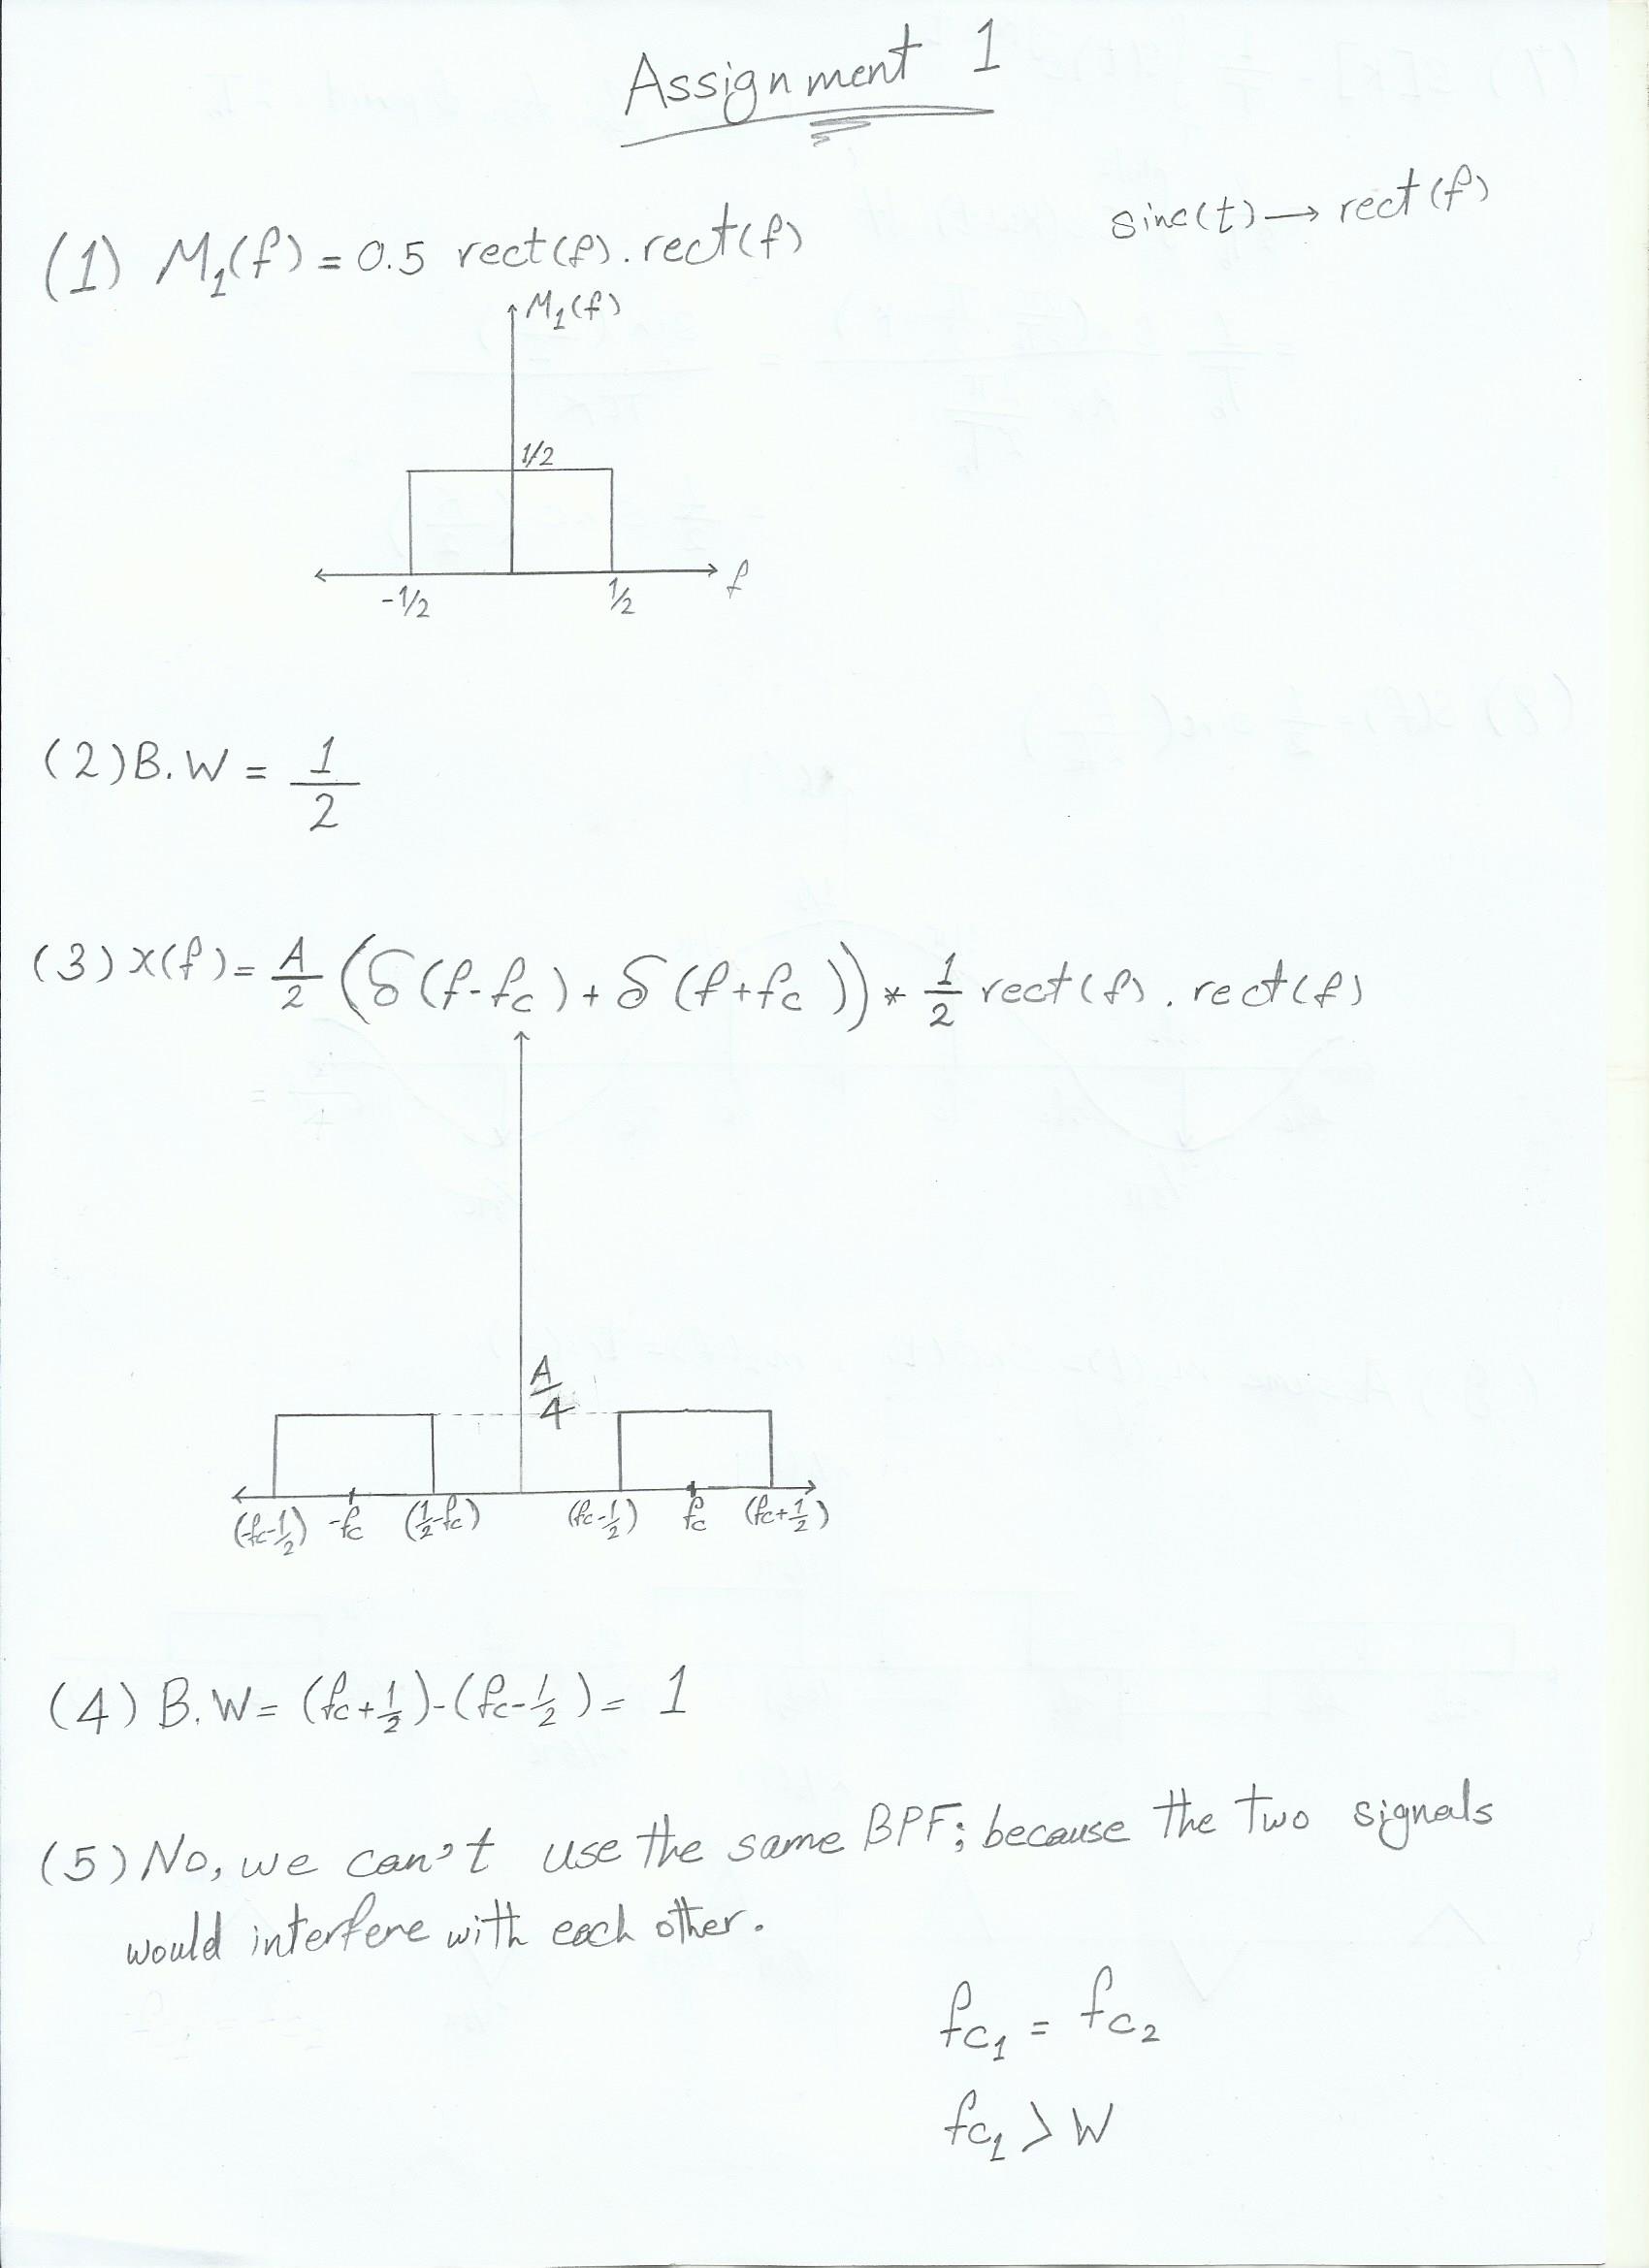 Assignment 1
sinc(t) → rect(f)
(1) M₁(f) = 0.5 rect(f) . rect(f)
M₁(f)
1/2
-1/2 1/2 f
(2) B.W = 1/2
(3) X(f) = A/2 (δ(f-fc) + δ(f+fc)) * 1/2 rect(f) . rect(f)
A/4
(-fc-1/2) -fc (1/2-fc) (fc-1/2) fc (fc+1/2)
(4) B.W = (fc+1/2)-(fc-1/2) = 1
(5) No, we can't use the same BPF; because the two signals
would interfere with each other.
fc₁ = fc₂
fc₁ > W